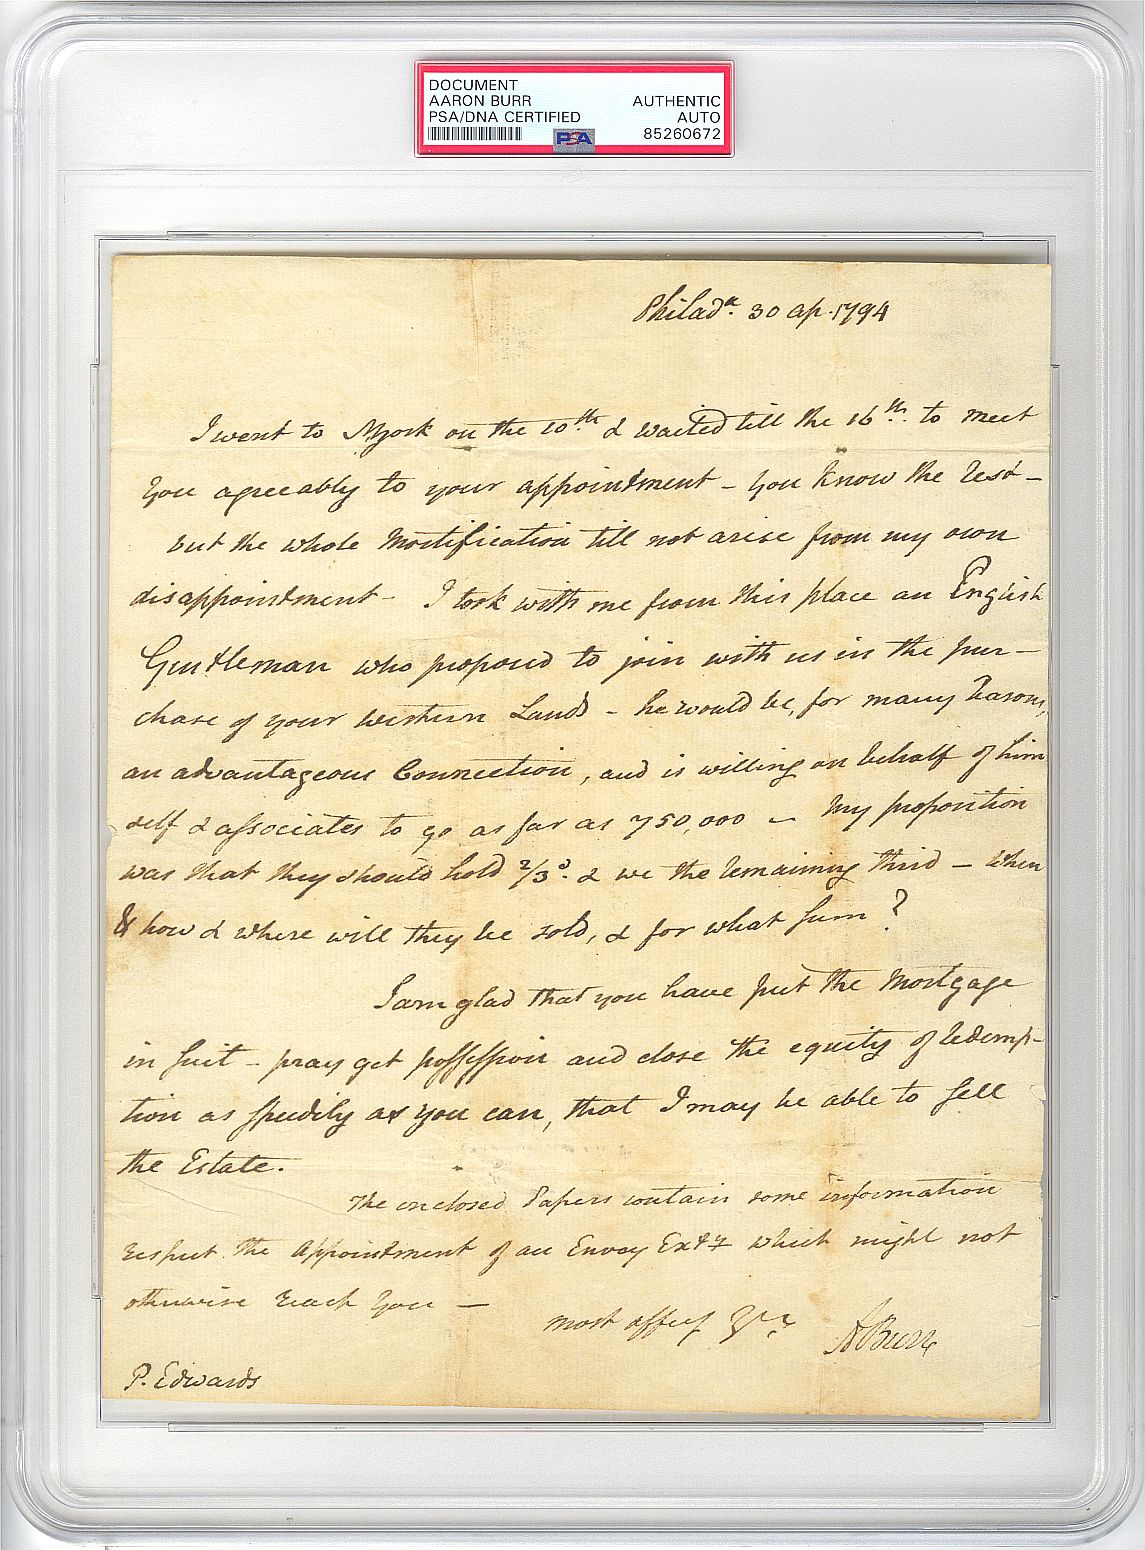 DOCUMENT
AARON BURR
PSA/DNA CERTIFIED
AUTHENTIC
AUTO
85260672
PSA
Philad.ª 30 ap. 1794
I went to NYork on the 10th & waited till the 16th. to meet
you agreeably to your appointment – you know the rest –
but the whole Mortification till not arise from my own
disappointment – I took with me from this place an English
Gentleman who proposed to join with us in the pur–
chase of your western Lands – he would be, for many reasons,
an advantageous Connection, and is willing on behalf of him
self & associates to go as far as 750,000 – My proposition
was that they should hold 2/3ds. & we the remaining third – When
& how & where will they be sold, & for what sum ?
I am glad that you have put the Mortgage
in suit – pray get possession and close the equity of redemp–
tion as speedily as you can, that I may be able to sell
the Estate.
The enclosed Papers contain some information
respect. the Appointment of an Envoy Exty which might not
otherwise reach you —
most affecy Yrs
ABurr
P. Edwards